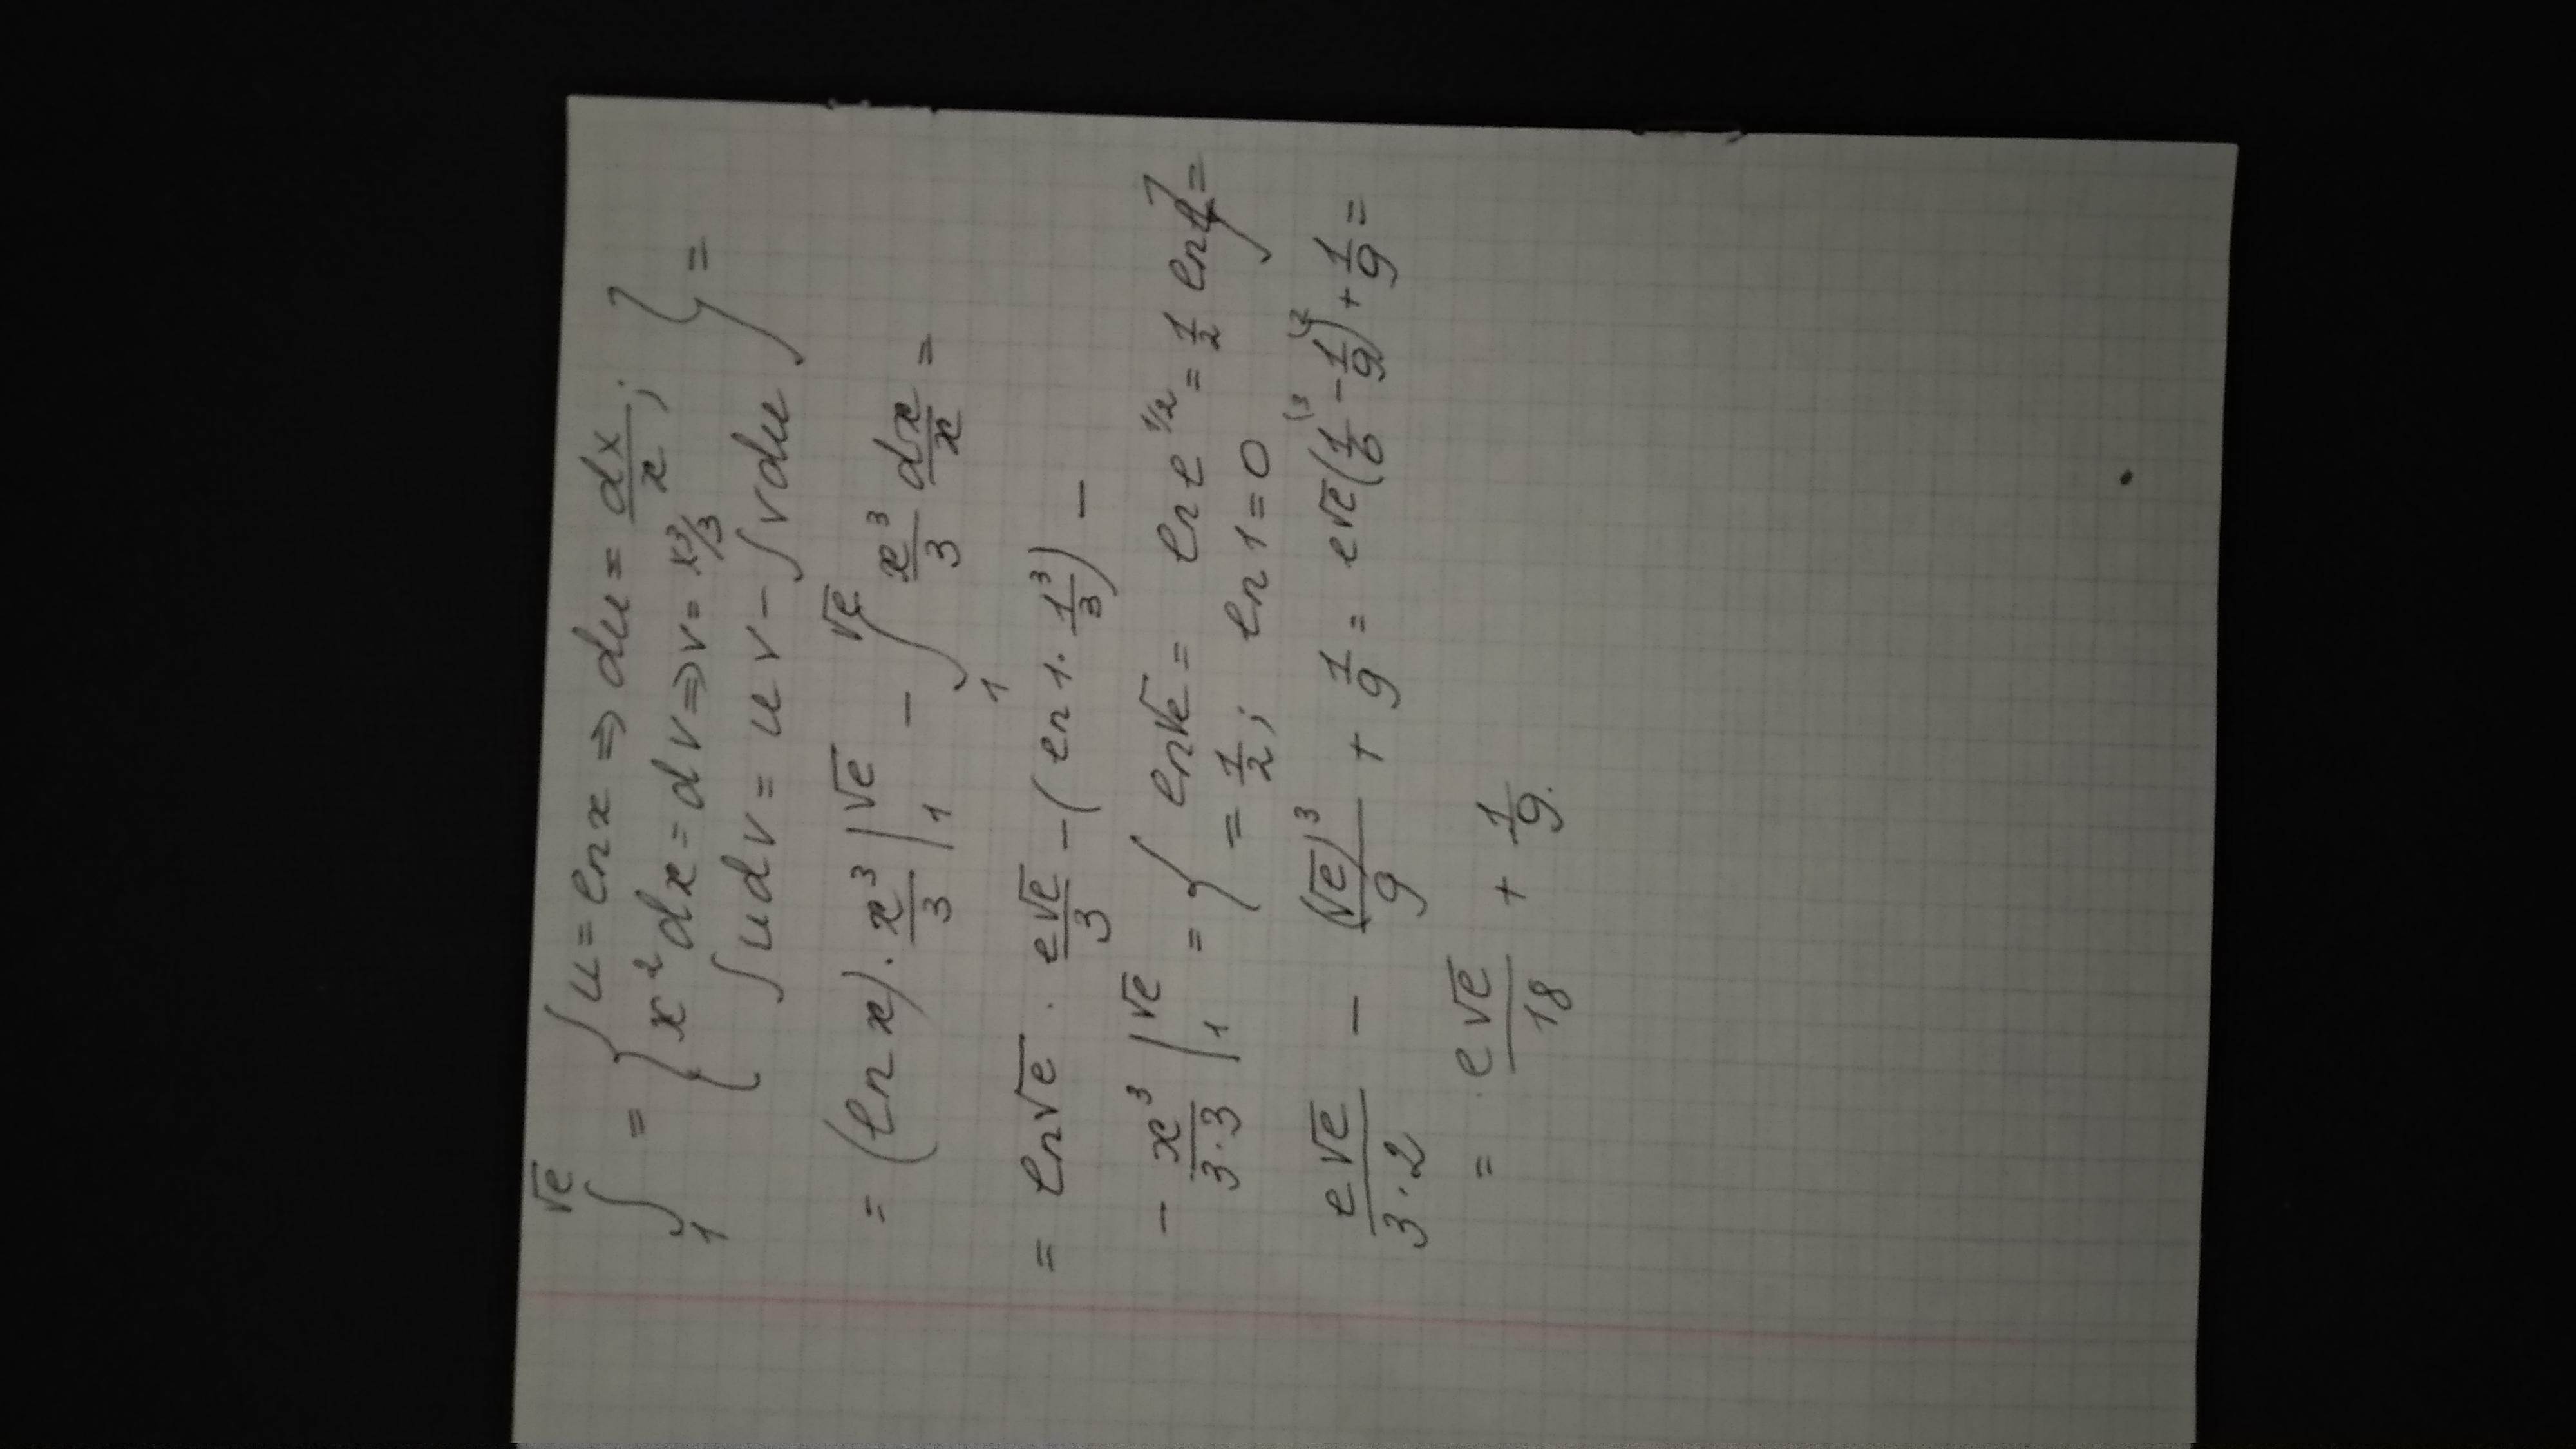 ∫₁^√e = { u = ln x ⇒ du = dx/x ;
x² dx = dv ⇒ v = x³/3
∫ u dv = u v - ∫ v du } =
= (ln x) · x³/3 |₁^√e - ∫₁^√e x³/3 dx/x =
= ln √e · e√e/3 - (ln 1 · 1³/3) -
- x³/(3·3) |₁^√e = { ln √e = ln e^1/2 = 1/2 ln e =
= 1/2 ; ln 1 = 0 } =
e√e/(3·2) - (√e)³/9 + 1/9 = e√e (1/6 \3 - 1/9 \2) + 1/9 =
= e√e/18 + 1/9.